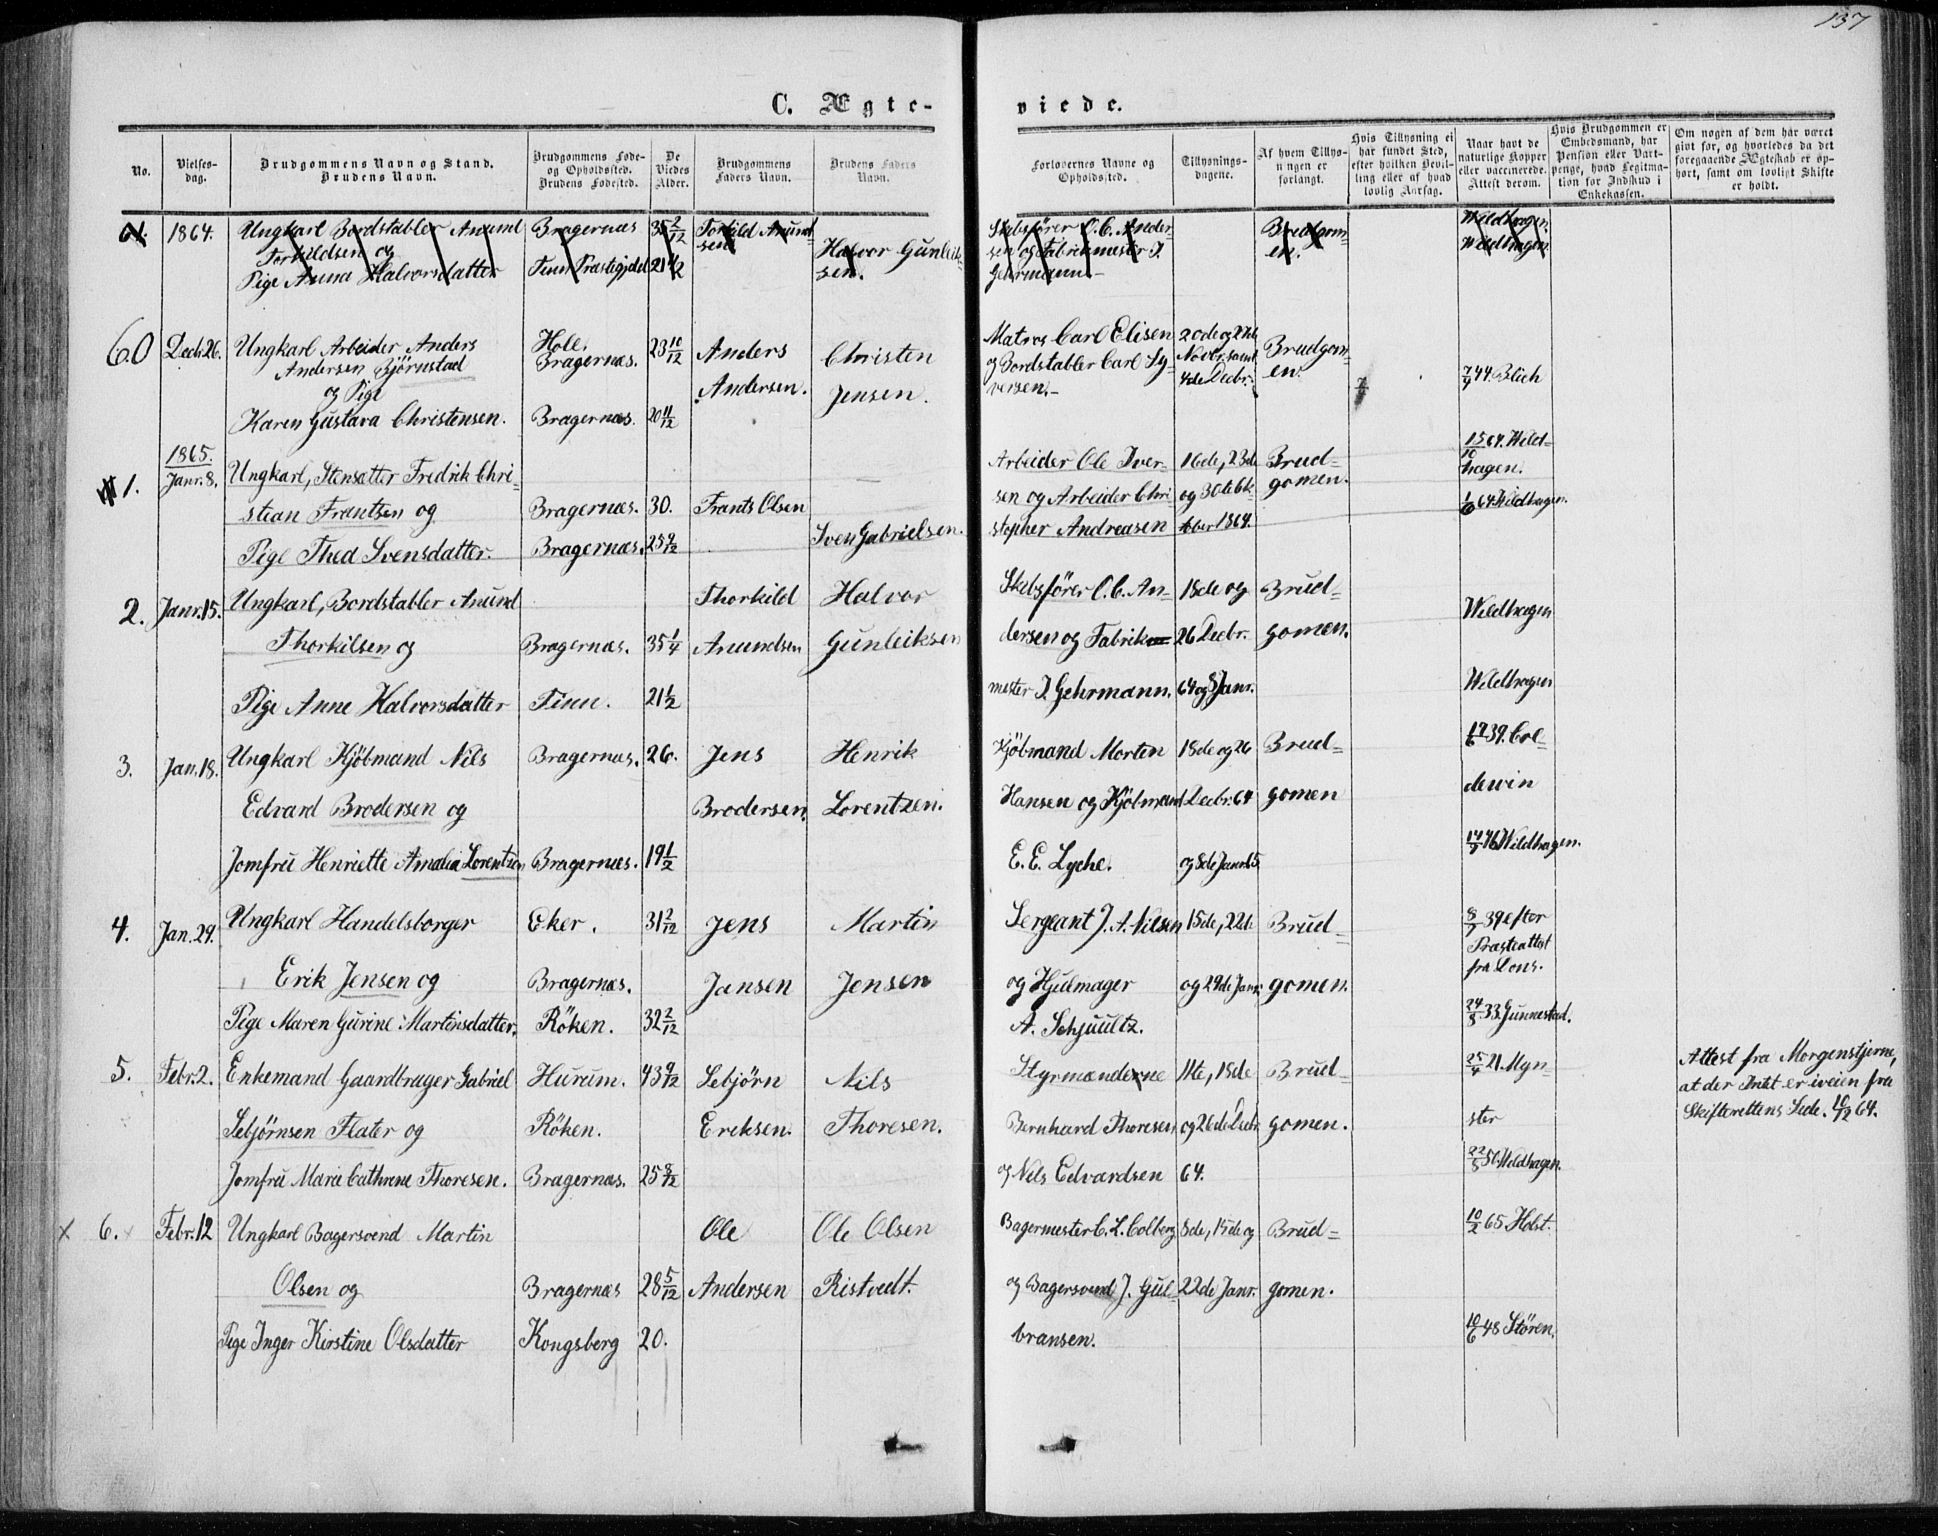 137
C. Ægte-
viede.
No.
Vielses-
dag.
Brudgommens Navn og Stand.
Brudens Navn.
Brudgommens Føde-
og Opholdssted.
Brudens Fødested.
De
Viedes
Alder.
Brudgommens
Faders Navn.
Brudens Faders
Navn.
Forlovernes Navne og
Opholdssted.
Tillysnings-
dagene.
Af hvem Tillys-
ningen er
forlangt.
Hvis Tillysning ei
har fundet Sted,
efter hvilken Bevil-
ling eller af hvad
lovlig Aarsag.
Naar havt de
naturlige Kopper
eller vaccinerede.
Attest derom.
Hvis Brudgommen er
Embedsmand, har
Pension eller Vart-
penge, hvad Legitima-
tion for Indskud i
Enkekassen.
Om nogen af dem har været
givt før, og hvorledes da det
foregaaende Ægteskab er op-
hørt, samt om lovligt Skifte
er holdt.
61. 1864. Ungkarl Bordstabler Anund Bragernæs 35 2/12 Torkild Anund-
sen
Torkildsen og
Pige Anna Halvorsdatter Tinn Præstegjeld 21 1/2 Halvor Gunleik-
sen.
Skibsfører O. C. Ander-
sen og Fabrikmester J.
Gehrmann.-
Brudgom-
en.
Wildhagen.
Wildhagen.
60 Decb. 26. Ungkarl Arbeider Anders
Andersen Bjørnstad
og Pige
Karen Gustava Christensen.
Hole.
Bragernæs. 23 10/12
Bragernæs. 20 11/12
Anders
Andersen.
Christen
Jensen.
Matros Carl Elisen
og Bordstabler Carl Sy-
versen.-
20de og 27de
Novbr. samt
4de Decbr.
Brudgom-
en.
7/9 44. Blich
1865.
1. Janr. 8. Ungkarl, Stensætter Fredrik Chri-
stian Frantsen og Bragernæs. 30. Frants Olsen
Pige Thea Svensdatter. Bragernæs. 25 9/12 Sven Gabrielsen.
Arbeider Ole Iver-
sen og Arbeider Chri-
stopher Andreasen
16de, 23de
og 30te Ok-
tober 1864.
Brud-
gomen.
15/10 64. Wild-
hagen.
1/6 64. Wildhagen.
2. Janr. 15. Ungkarl, Bordstabler Anund
Thorkilsen og Bragernæs. 35 1/4
Pige Anne Halvorsdatter Tinn. 21 1/2
Thorkild
Anundsen
Halvor
Gunleiksen
Skibsfører O. C. An-
dersen og Fabrik-
mester J. Gehrmann.
18de og
26 Decbr.
64 og 8 Janr.
Brud-
gomen.
Wildhagen
Wildhagen
3. Jan. 18. Ungkarl Kjöbmand Nils
Edvard Brodersen og
Jomfru Henriette Amalia Lorentzen
Bragernæs. 26.
Bragernæs. 19 1/2
Jens
Brodersen.
Henrik
Lorentzen.
Kjöbmand Morten
Hansen og Kjöbmand
E. E. Lyche.
18de og 26
Decbr. 64
og 8de Janr. 65.
Brud-
gomen
17/6 39. Col-
dewin
14/9 46 Wildhagen.
4. Jan. 29. Ungkarl Handelsborger
Erik Jensen og
Pige Maren Gurine Martinsdatter.
Eker. 31 2/12
Bragernæs.
Röken. 32 2/12
Jens
Jansen
Martin
Jensen
Sergeant J. A. Nilsen
og Hjulmager
A. Schjuultz.
15de, 22de
og 29de Janr.
Brud-
gomen.
8/7 39 efter
Præsteattest
fra Lons.
24/8 33. Gunnestad.
5. Febr. 2. Enkemand Gaardbruger Gabriel
Sebjørnsen Flater og
Jomfru Maria Cathrene Thoresen.
Hurum. 43 9/12
Röken.
Bragernæs. 25 8/12
Sebjörn
Ereksen.
Nils
Thoresen.
Styrmændene
Bernhard Thoresen
og Nils Edvardsen
11te, 18de
og 26de Decbr.
64.
Brud-
gomen.
25/4 21. Myn-
ster
22/5 50. Wildhagen.
Attest fra Morgenstjerne,
at der Intet er iveien fra
Skifterettens Side. 10/12 64.
6. Febr. 12 Ungkarl Bagersvend Martin
Olsen og
Pige Inger Kirstine Olsdatter
Bragernæs 28 5/12
Kongsberg 20.
Ole
Andersen
Ole Olsen
Ristvedt.
Bagermester C. L. Colberg
og Bagersvend J. Gul-
bransen.
8de, 15de og
22de Janr.
Brud-
gomen.
10/2 65 Holst.
10/6 48 Stören.